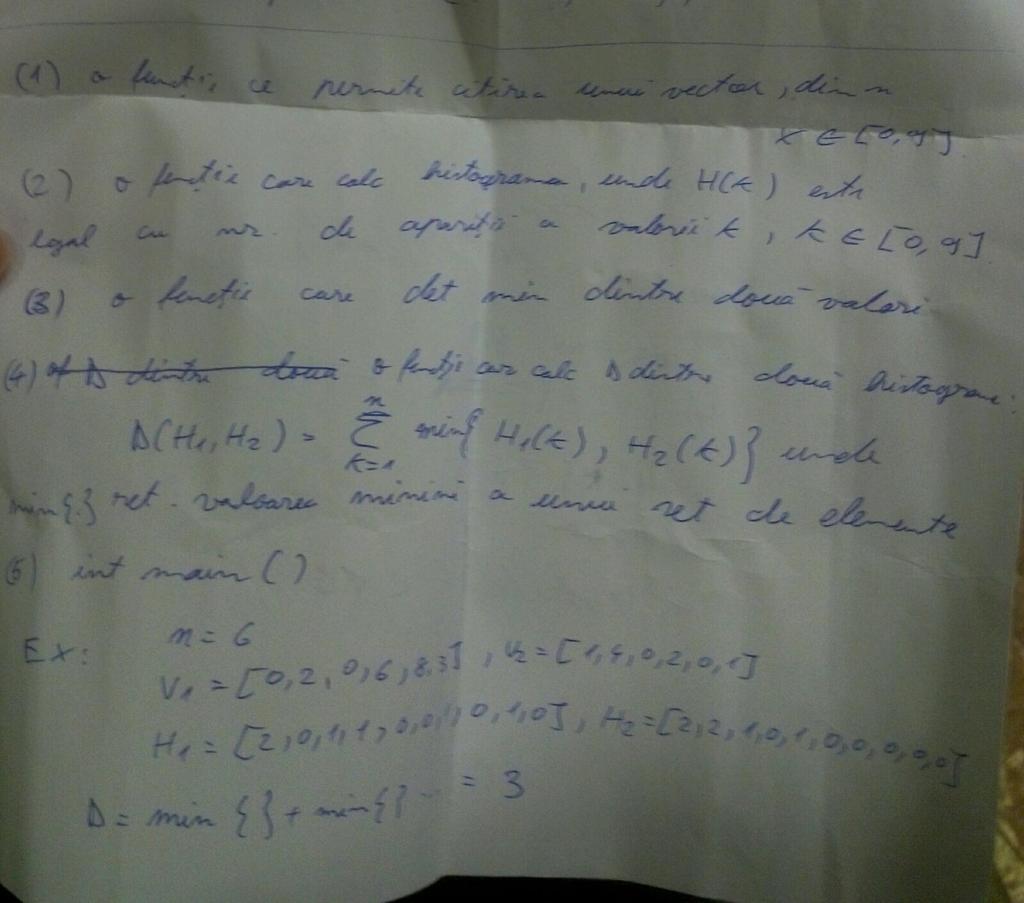 (1) o funcți, ce permite citirea unui vector, dim n
x ∈ [0,9].
(2) o funcție care calc histograma, unde H(k) este
legal cu nr. de apariții a valorii k, k ∈ [0,9].
(3) o funcție care det min dintre două valori
(4) D dintre două o funcți car calc D dintre două histograme:
D(H₁,H₂) = Σ min{ H₁(k), H₂(k)} unde
n
k=1
min{.} ret. valoarea minimă a unui set de elemente
(5) int main()
Ex: n = 6
V₁ = [0,2,0,6,8,3], V₂ = [1,4,0,2,0,1]
H₁ = [2,0,1,1,0,0,1,0,1,0], H₂ = [2,2,1,0,1,0,0,0,0,0]
D = min {} + min{} ... = 3